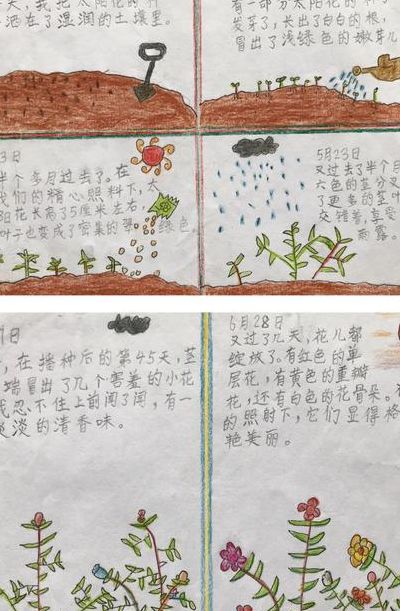 天，我把太阳花的种
洒在了湿润的土壤里。
有一部分太阳花的种
发芽了，长出了白白的根，
冒出了浅绿色的嫩芽儿
3日
半个多月过去了。在
我们的精心照料下，太
阳花长高了5厘米左右，
叶子也变成了密集的翠绿色
5月23日
又过去了半个月
六色的茎分叉
了更多的茎叶
交错着，享受
雨露。
9日
，在播种后的第45天，茎
端冒出了几个害羞的小花
我忍不住上前闻了闻，有一
淡淡的清香味。
6月28日
又过了几天，花儿都
绽放了。有红色的单
层花，有黄色的重瓣
花，还有白色的花骨朵。
的照射下，它们显得格
艳美丽。